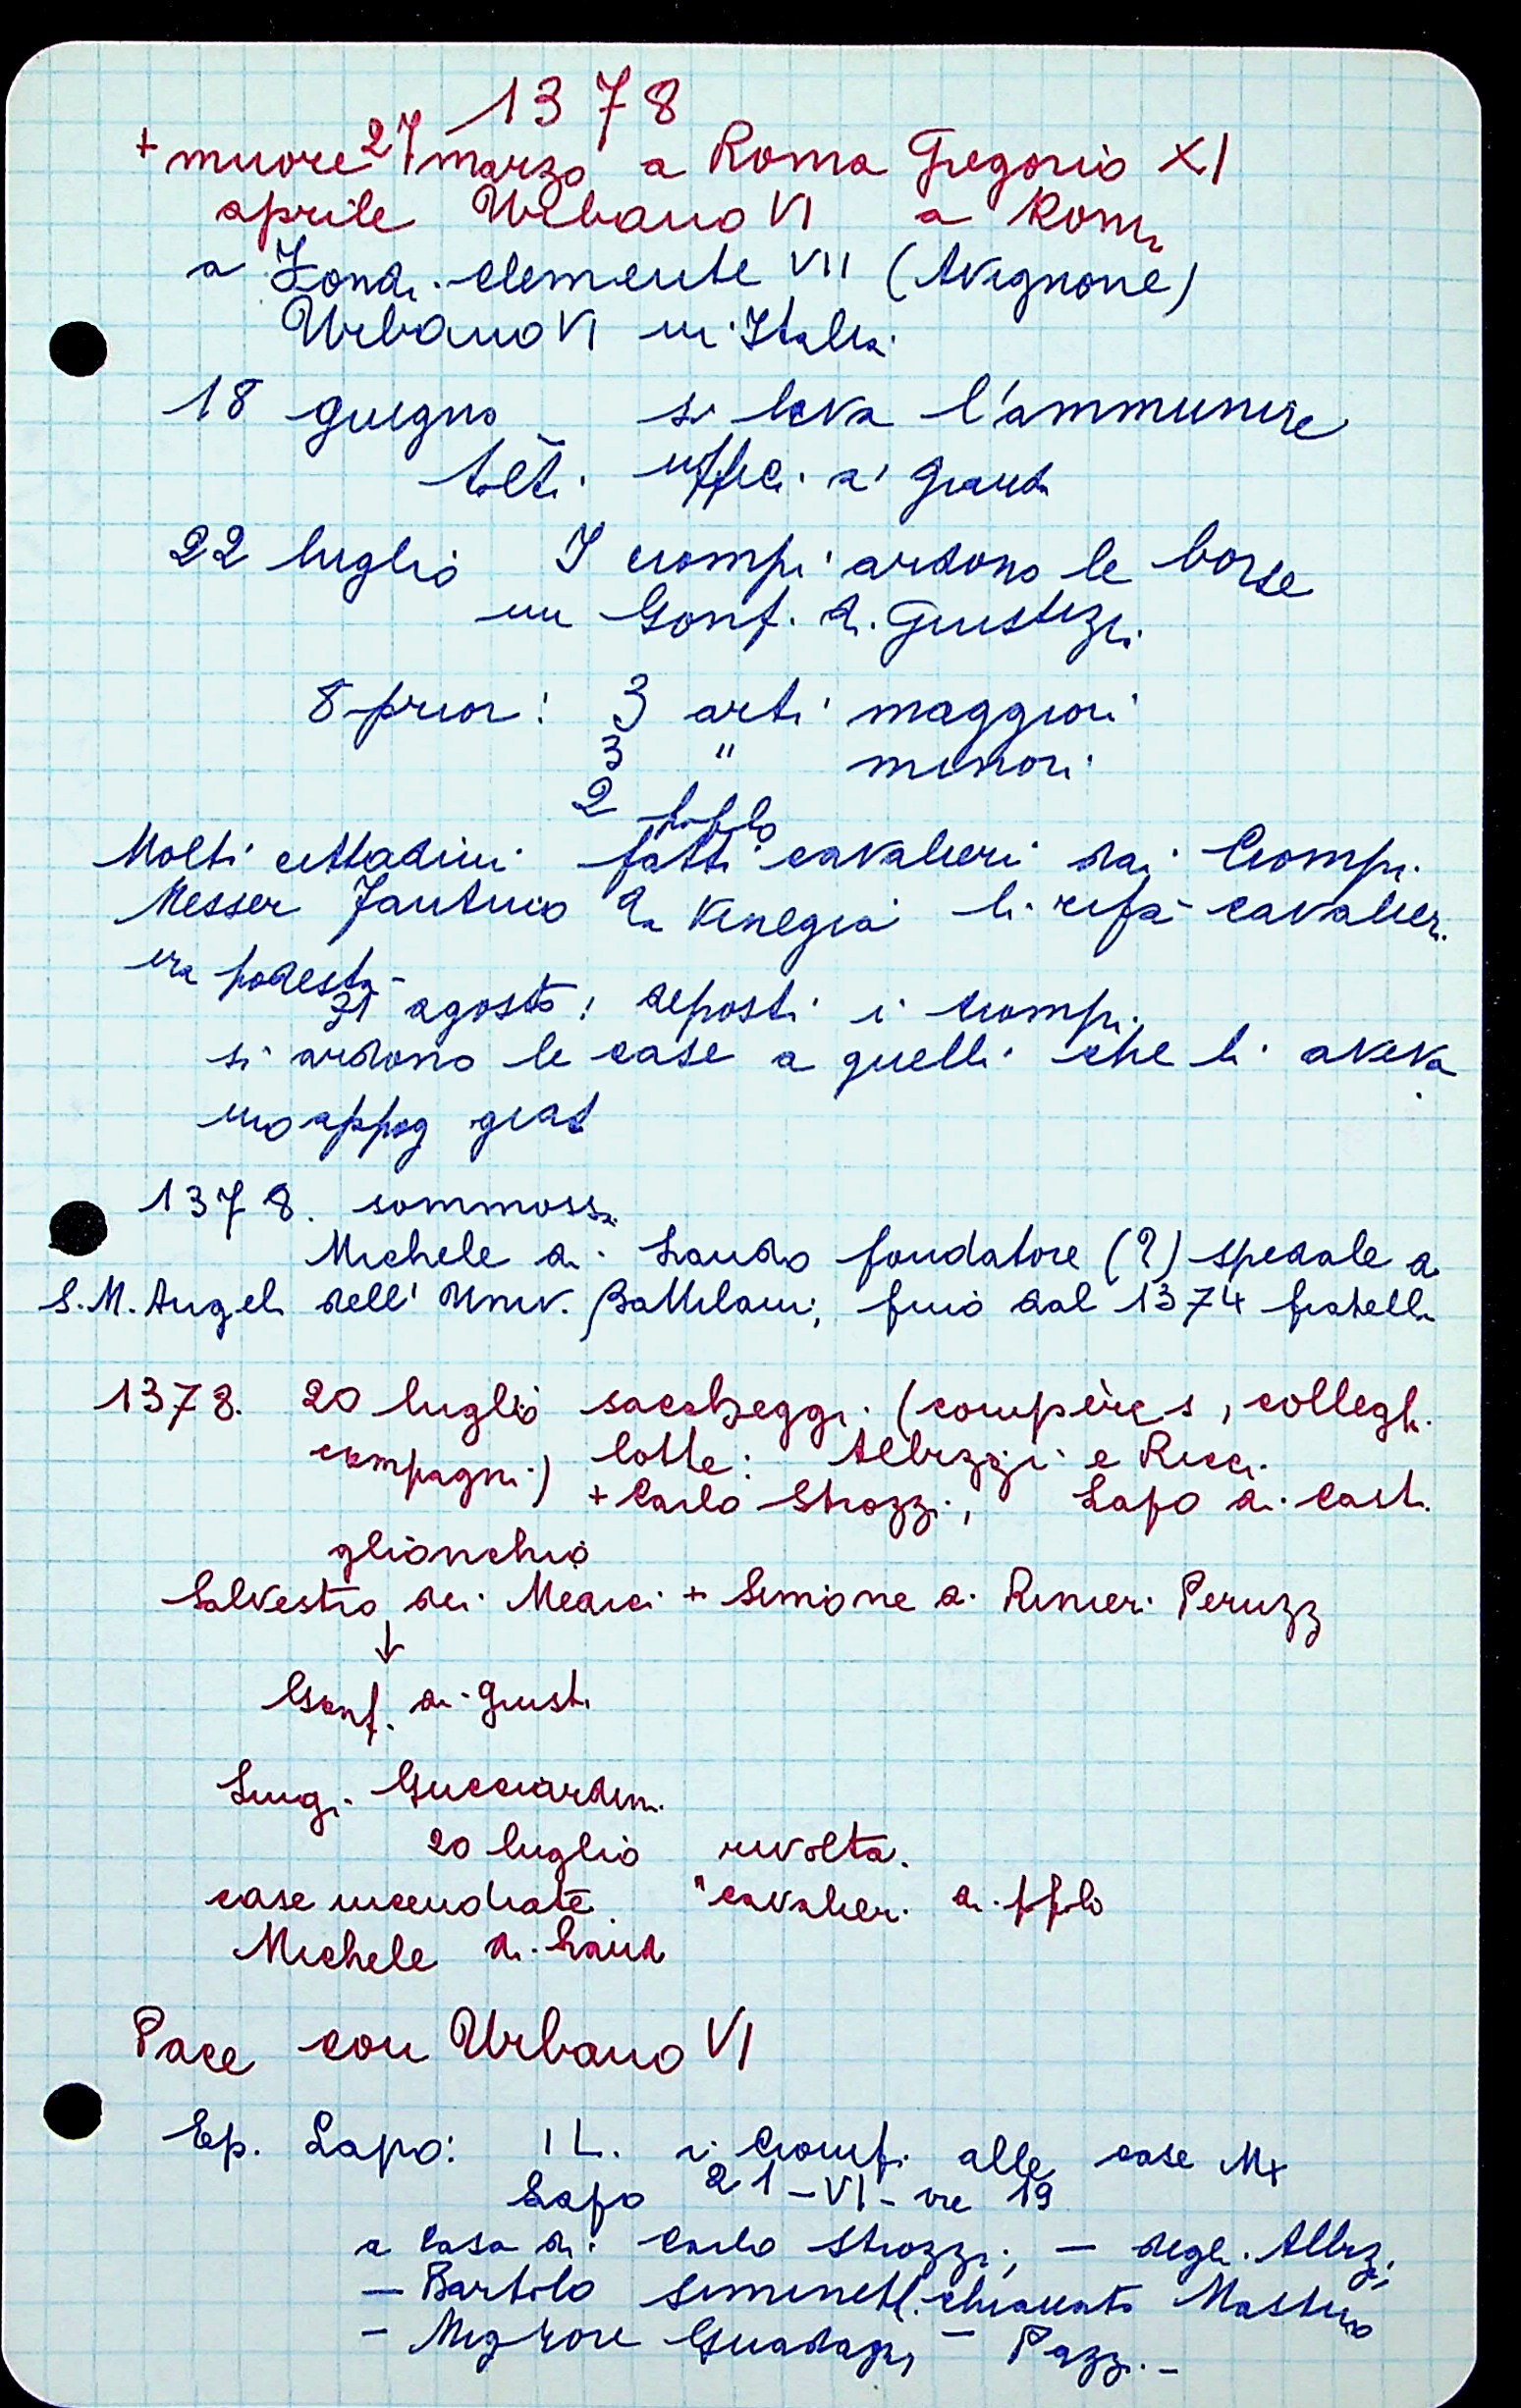 1378
+ muore 27 marzo a Roma Gregorio XI
aprile Urbano VI a Roma
a Fondi Clemente VII (Avignone)
Urbano VI in Italia
18 giugno si leva l'ammunire
tolti uffici ai Grandi
22 luglio I ciompi ardono le borse
un Gonf. di Giustizi.
8 priori: 3 arti maggiori
3 " minori
2 popolo
Molti cittadini fatti cavalieri dai Ciompi.
Messer Fantino da Vinegia li rifà cavalier.
era podestà
31 agosto: deposti i ciompi.
si ardono le case a quelli che li aveva
no appog giat
1378. sommossa
Michele di Lando fondatore (?) spedale di
S. M. Angeli dell' Univ. Battilani, fino dal 1374 fratelli
1378. 20 luglio saccheggi (compères, colleghi
compagni) lotte: Albizzi e Ricci
+ Carlo Strozzi, Lapo di Casti
glionchio
Salvestro dei Medici + Simone di Rinieri Peruzz
↓
Gonf. di giust.
Luigi Guicciardini
20 luglio rivolta.
case incendiate "cavalieri di pplo
Michele di Land
Pace con Urbano VI
Ep. Lapo: 1 L. i Ciompi alle case Mx
Lapo 21-VI- ore 19
a casa di: Carlo Strozzi, – degli Albizi,
– Bartolo Siminetti chiamato Mastino
– Migliore Guadagni, – Pazzi. –